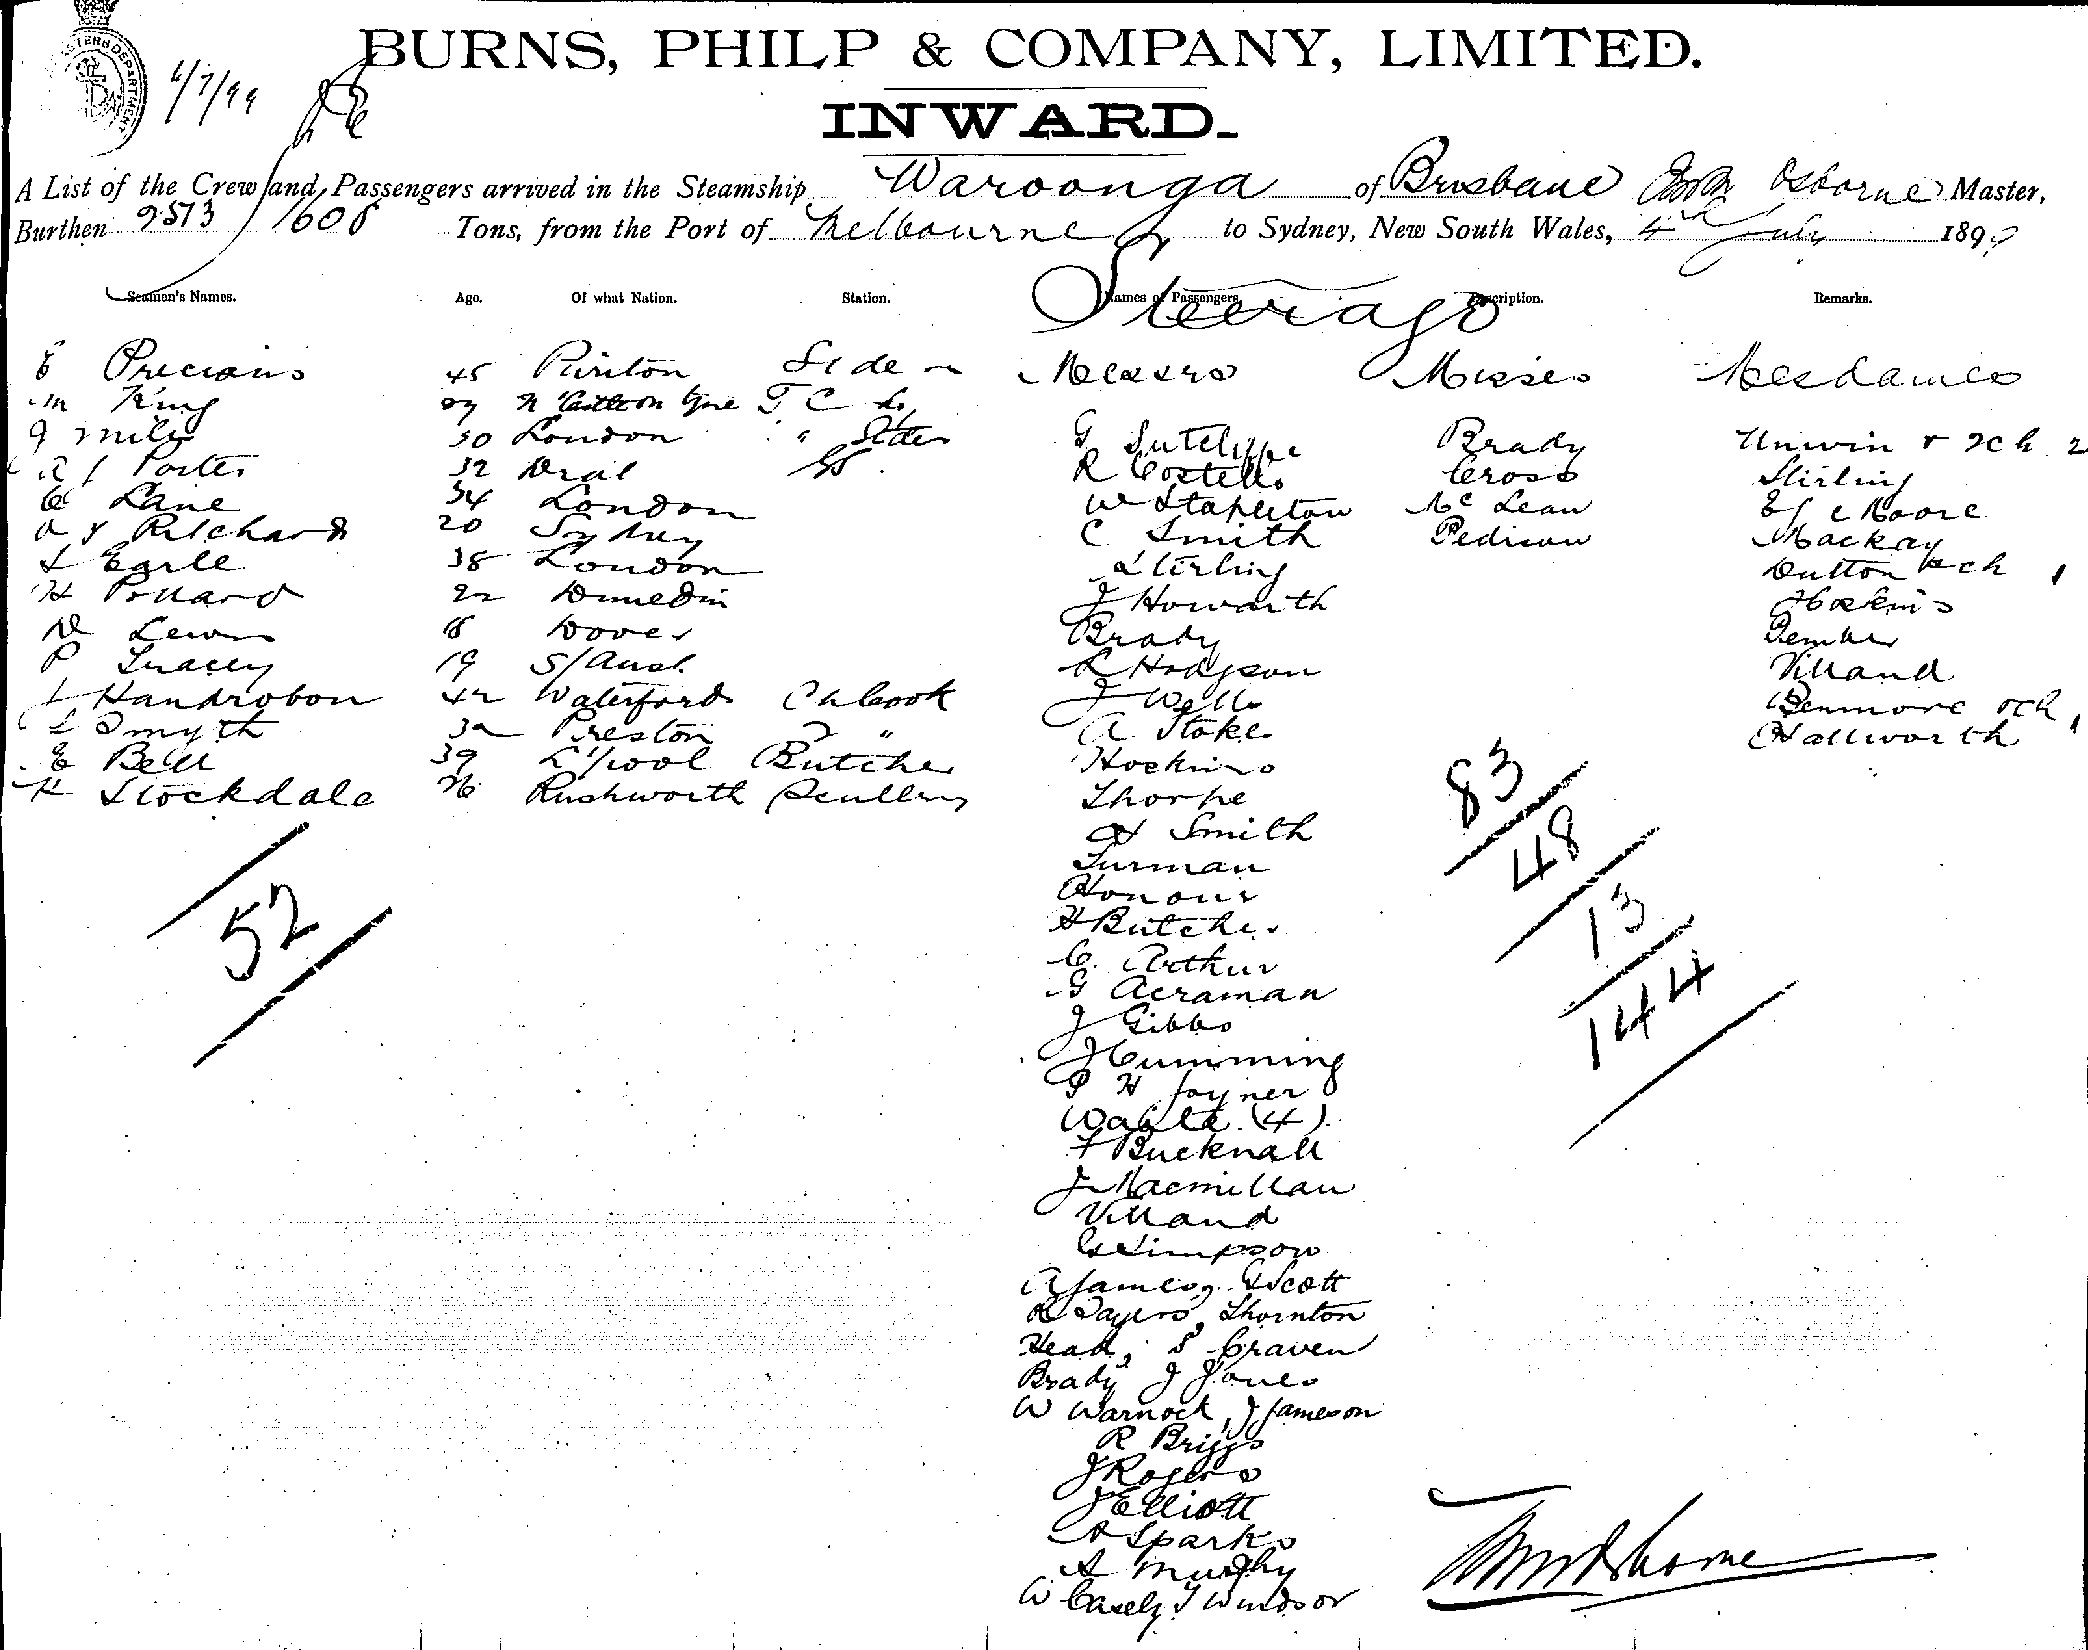 BURNS, PHILP & COMPANY, LIMITED.
6/7/99
INWARD.
A List of the Crew and Passengers arrived in the Steamship Waroonga of Brisbane Osborne Master,
Burthen 2513/1608 Tons, from the Port of Melbourne to Sydney, New South Wales, 4th July 1899
Seamen's Names. Age. Of what Nation. Station. Names of Passengers Description. Remarks.
Steerage
E Precious 45 Puriton Messrs Misses Mesdames
M King
J Mills 30 London " G Sutcliffe Brady Unwin & 2ch 2
A J Porter 32 Deal R Costello Cross Stirling
C Lane 34 London W Stapleton McLean E J C Moore
A J Pitchard 20 Sydney C Smith Pedison Mackay
Earle 38 London Stirling Dutton & ch 1
H Pollard 22 Dunedin J Howarth Hoskins
D Lewis 18 Dover Brady
P Tracey 19 S/Aust. R Hodgson Villand
J Handrobon 42 Waterford Ch Cook J Wells Benmore & ch 1
L Smyth 32 Preston 2 " A Stoke Hallworth
E Bell 39 L'pool Butcher Hockins
H Stockdale 26 Rushworth Scullery Thorpe
83
H Smith
48
Turman
Honour
13
52
H Butcher
C. Arthur
144
G Acraman
J Gibbs
J Cumming
P H Joyner
(4)
F Bucknall
J Macmillan
Villand
G Simpson
A James, G Scott
R Sayers, Thornton
Head, S Craven
Brady J Jones
W Warnock, J Jameson
R Briggs
J Rogers
J Elliott
A Sparks
A Murphy
W Casely T Windsor